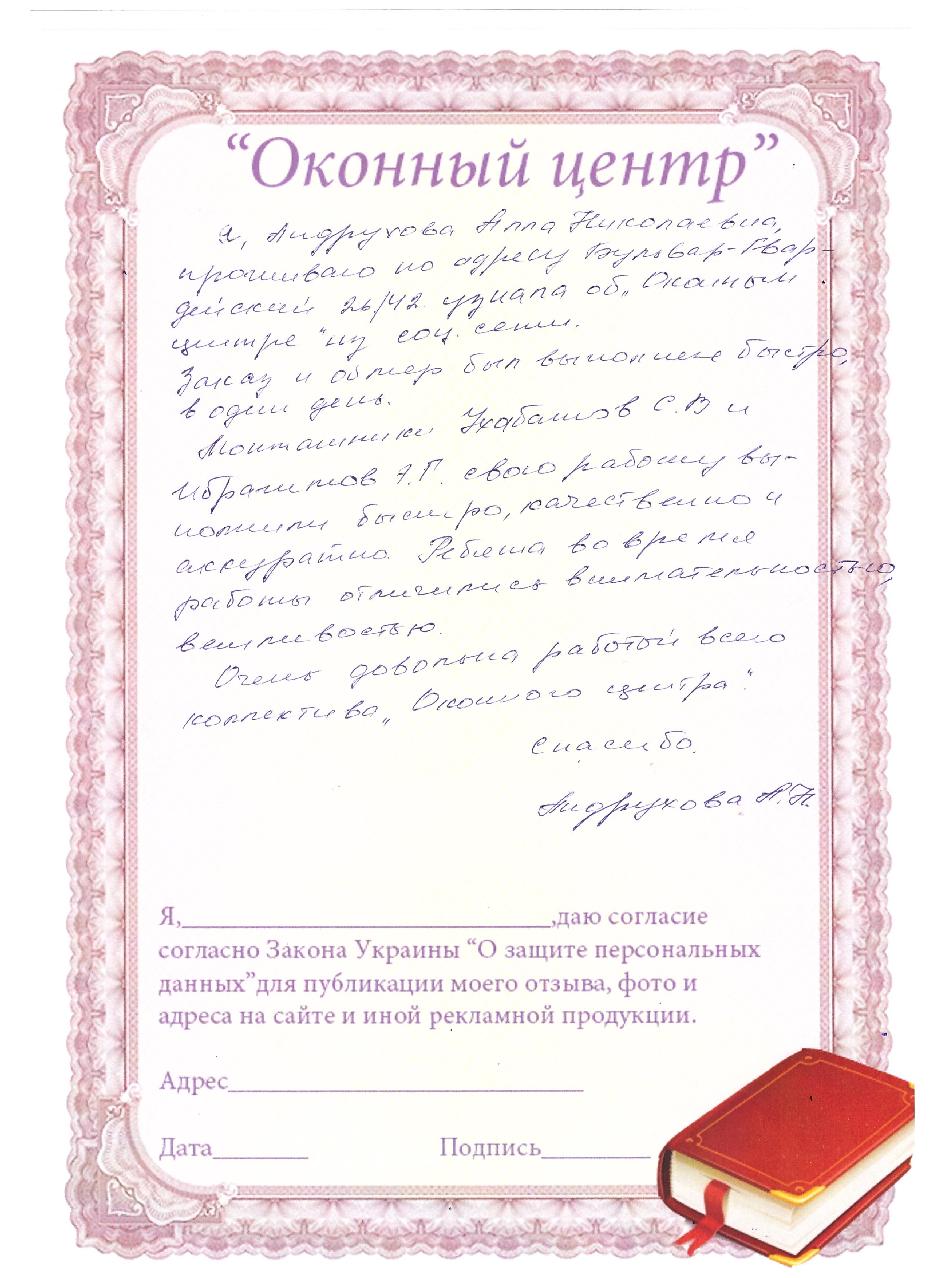 “Оконный центр”
Я, Андрухова Алла Николаевна,
проживаю по адресу Бульвар-Гвар-
дейский 26/42 узнала об „Оконным
центре" из соц. сети.
Заказ и обмер был выполнен быстро,
в один день.
Монтажники Ухабатов С.В и
Ибрагимов А.Г. свою работу вы-
полнили быстро, качественно и
аккуратно. Ребята во время
работы отличились внимательностью,
вежливостью.
Очень довольна работой всего
коллектива „Оконного центра".
Спасибо.
Андрухова А.Н.
Я,____________________________,даю согласие
согласно Закона Украины “О защите персональных
данных”для публикации моего отзыва, фото и
адреса на сайте и иной рекламной продукции.
Адрес___________________________
Дата_______ Подпись________